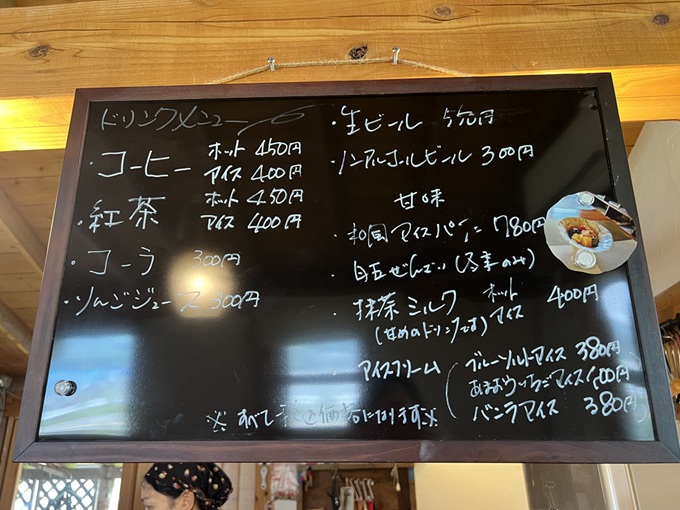 ドリンクメニュー
・コーヒー ホット 450円
アイス 400円
・紅茶 ホット 450円
アイス 400円
・コーラ 300円
・りんごジュース 300円
・生ビール 550円
・ノンアルコールビール 300円
甘味
・和風アイスパフェ 780円
・白玉ぜんざい(冬季のみ)
・抹茶ミルク ホット
アイス 400円
(甘めのドリンクです)
アイスクリーム
ブルーソルトアイス 380円
あまおういちごアイス 400円
バニラアイス 380円
※すべて税込価格になります※